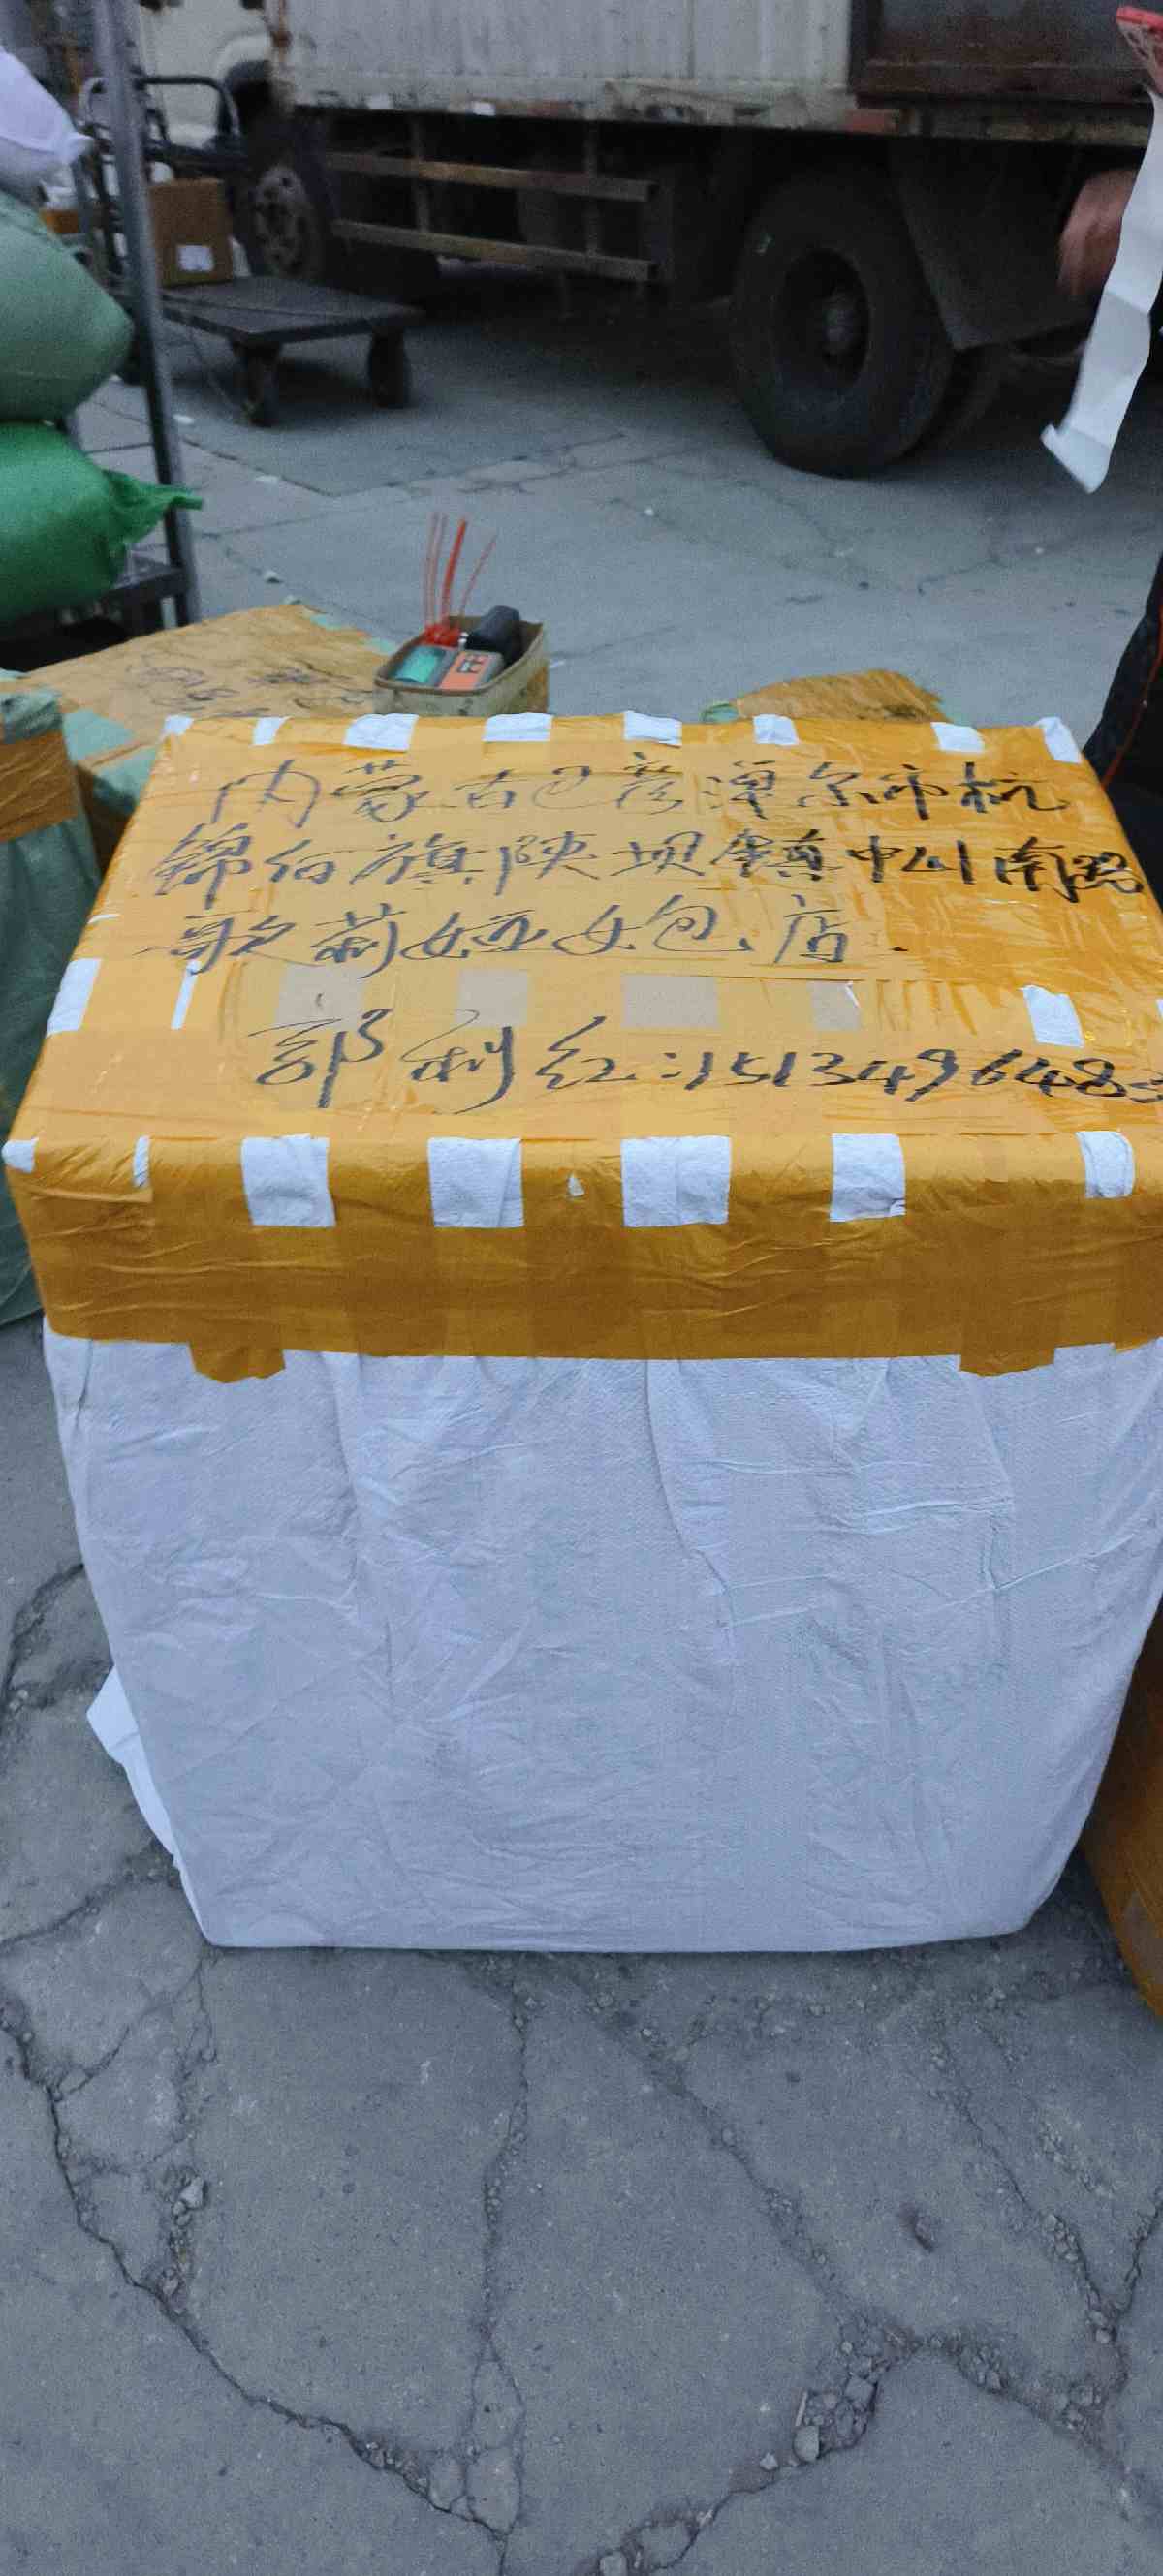 内蒙古巴彦淖尔市杭
锦后旗陕坝镇中山南路
歌莉娅女包店.
郭利红:1513496485